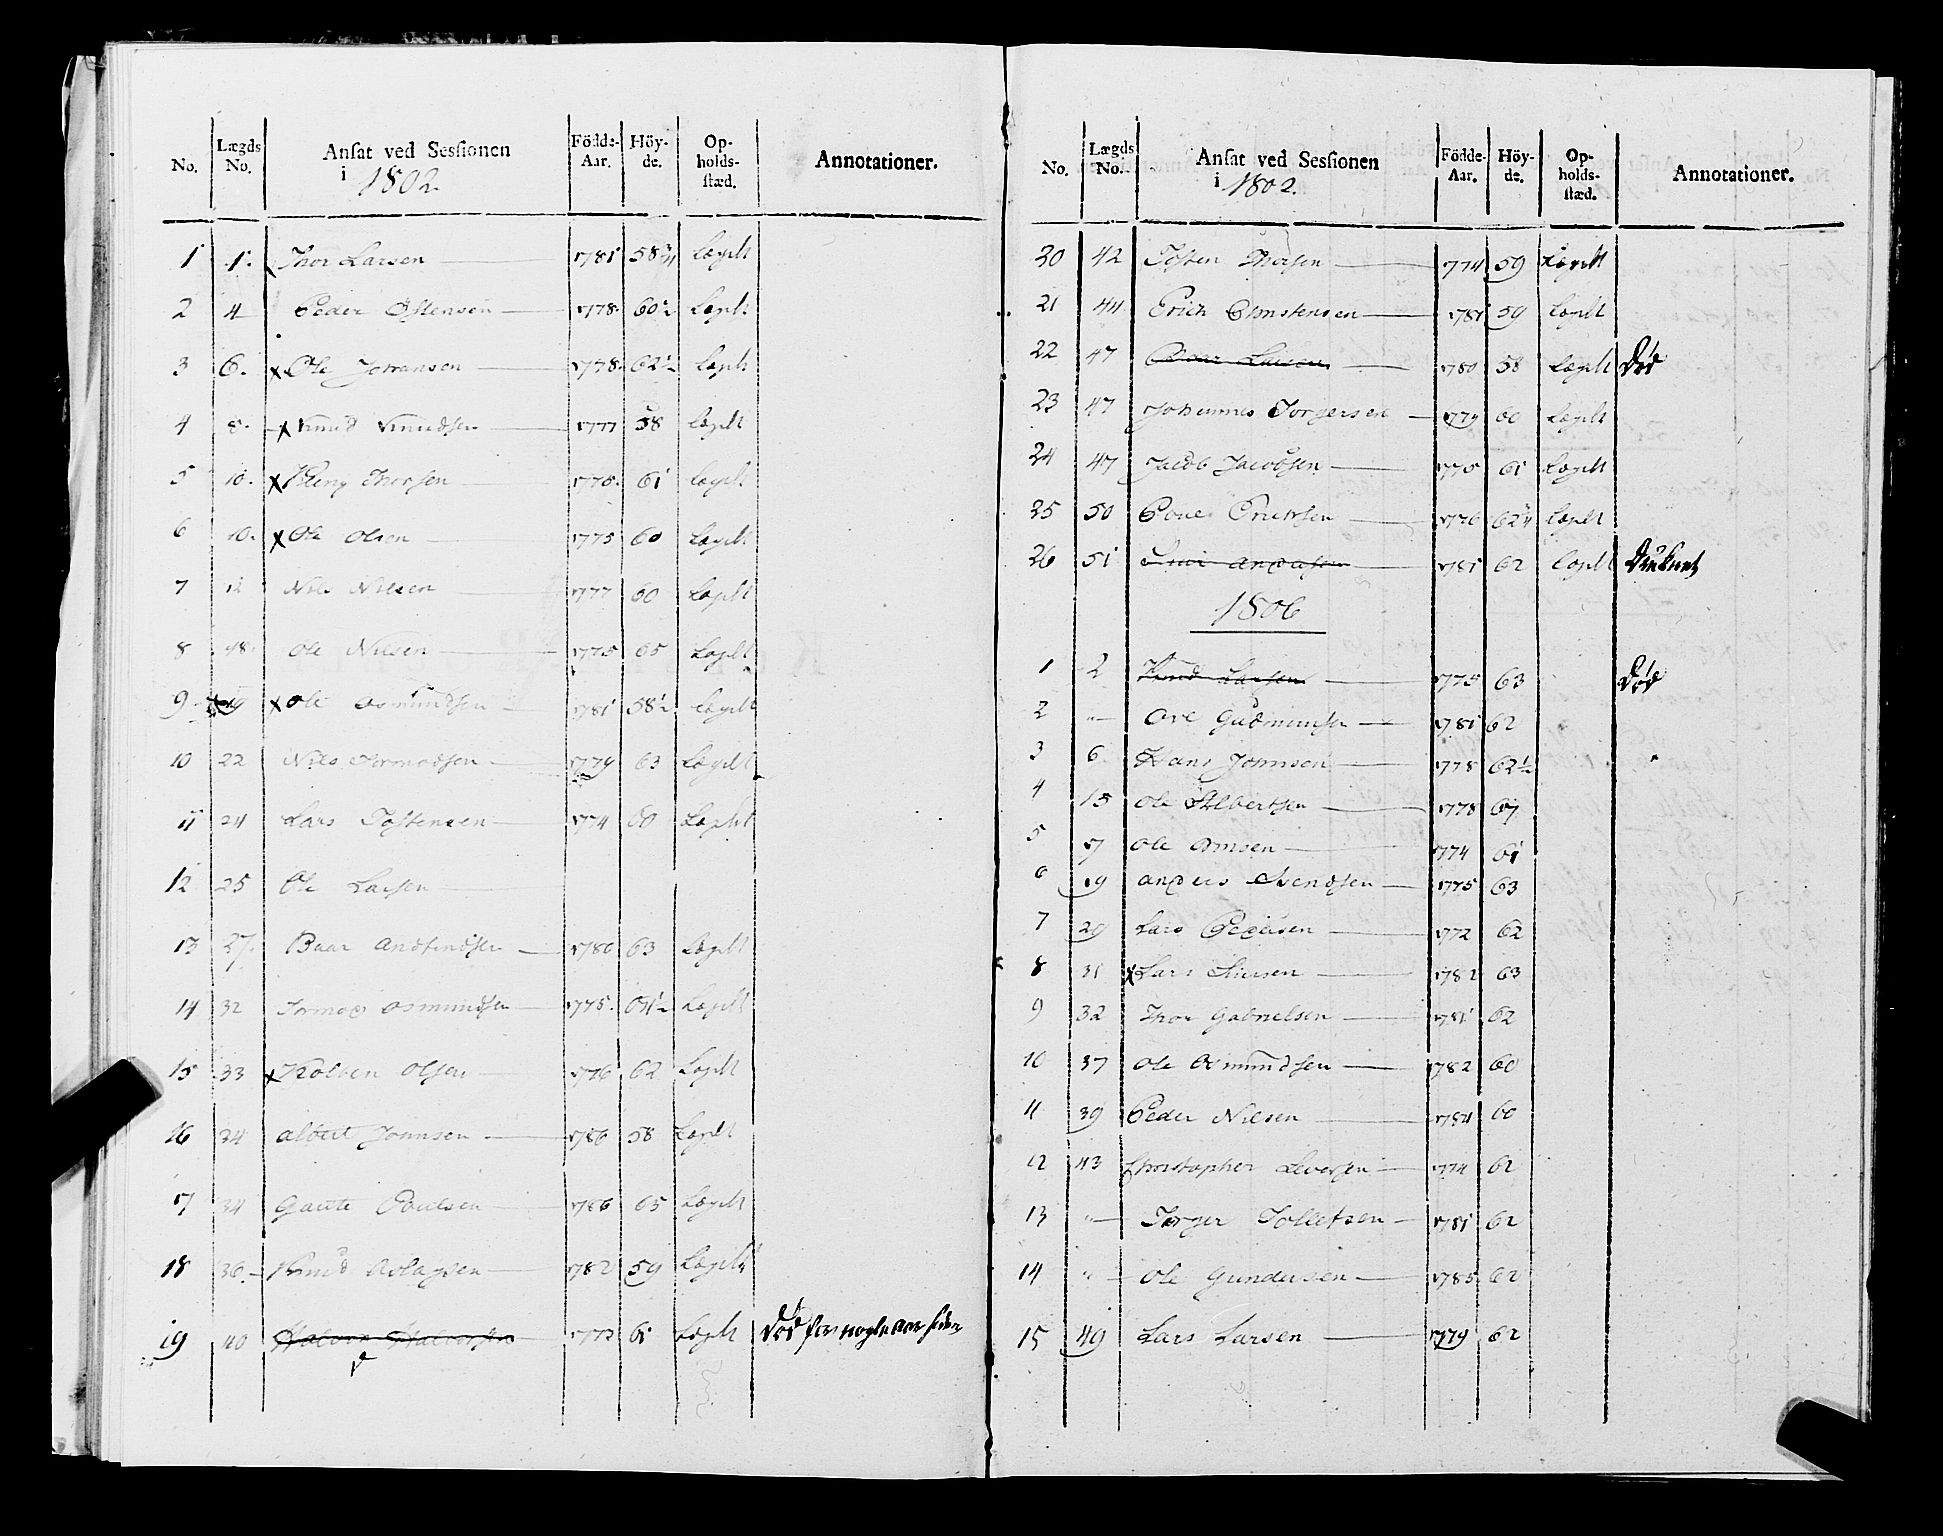 No. Lægds No. Ansat ved Sessionen i 1802. Födde-Aar. Höy-de. Op-holds-stæd. Annotationer.
1 1. Thor Larsen 1781 58 3/4 Lægdt
2 4 Peder Östensen 1778. 60 1/2 Lægdt
3 6. x Ole 1778. 62 1/2 Lægdt
4 8. x Knud Knudsen 1777 58 Lægdt
5 10. x Thorsen 1775. 61 Lægdt
6 10. x Ole Olsen 1775 60 Lægdt
7 12 Nils Nilsen 1777 60 Lægdt
8 18. Ole Nilsen 1775 65 Lægdt
9 19 x Ole Osmundsen 1781 58 1/2 Lægdt
10 22 Nils Tormodsen 1779 63 Lægdt
11 24 Lars Tostensen 1774 60 Lægdt
12 25 Ole Larsen
13 27. Baar Andfindsen 1780 63 Lægdt
14 32 Tormod Osmundsen 1775. 61 1/2 Lægdt
15 33 x Kolben Olsen 1776 62 Lægdt
16 34 Albert Jonnsen 1786 58 Lægdt
17 34 Gaute Poulsen 1786 65 Lægdt
18 36. Knud Aslagsen 1782 59 Lægdt
19 40 Halvor Halvorsen 1773 61 Lægdt Död for nogle aar siden
No. Lægds No. Ansat ved Sessionen i 1802. Födde-Aar. Höy-de. Op-holds-stæd. Annotationer.
20 42 Tosten Thorsen 1774 59 Lægdt
21 44 Erich Christensen 1781 59 Lægdt
22 47 Larsen 1780 58 Lægdt Död
23 47 Johannes Torgersen 1779 60 Lægdt
24 47 Jacob Jacobsen 1775 61 Lægdt
25 50 Povel Erichsen 1776 62 Lægdt
26 51 Andersen 1781 62 Lægdt Druknet
1806
1 2 Knud Larsen 1775 63 Död
2 "— Ove Gudmunsen 1781 62
3 6 Hans Jonnsen 1778 62 1/2
4 15 Ole Albertsen 1778 67
5 17 Ole 1774 61
6 19 Anders Svendsen 1775 63
7 29 Lars Pedersen 1772 62
8 31 x Lars 1782 63
9 32 Thor Gabrielsen 1781 62
10 37 Ole Osmundsen 1782 60
11 39 Peder Nilsen 1784 60
12 43 Christopher Leversen 1774 62
13 "— Torger Tolletsen 1781 62
14 "— Ole Gundersen 1785 62
15 49 Lars Larsen 1779 62